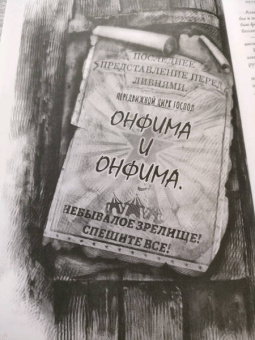 ПОСЛЕДНЕЕ
ПРЕДСТАВЛЕНИЕ ПЕРЕД
ЛИВНЯМИ.
ПЕРЕДВИЖНОЙ ЦИРК ГОСПОД
ОНФИМА
И
ОНФИМА.
НЕБЫВАЛОЕ ЗРЕЛИЩЕ!
СПЕШИТЕ ВСЕ!